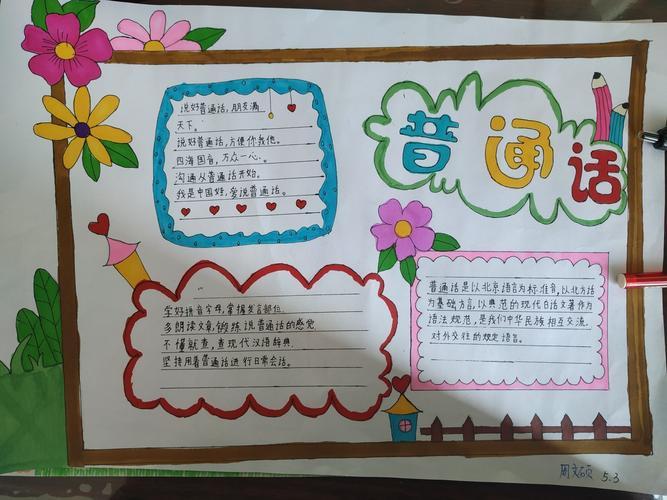 普通话
说好普通话,朋友满
天下。
说好普通话,方便你我他。
四海国音,万众一心。
沟通从普通话开始。
我是中国娃,爱说普通话。
学好拼音字母,掌握发言部位。
多朗读文章,锻炼说普通话的感觉
不懂就查,查现代汉语辞典
坚持用着普通话进行日常会话。
普通话是以北京语言为标准音,以北方话
为基础方言,以典范的现代白话文著作为
语法规范,是我们中华民族相互交流,
对外交往的规定语言。
周文硕 5.3